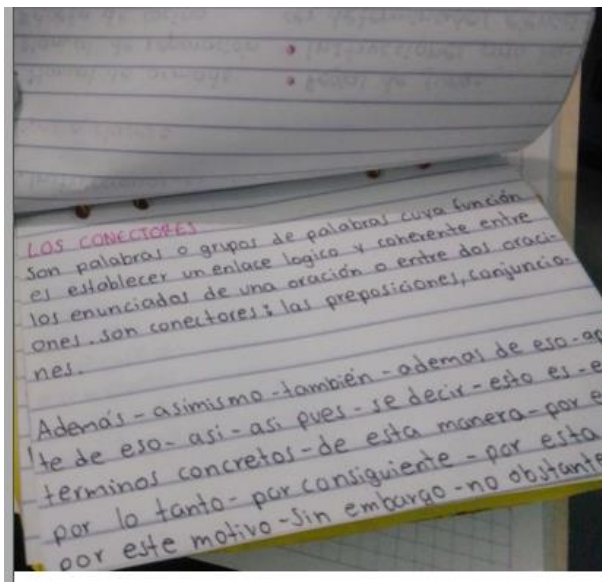 LOS CONECTORES
Son palabras o grupos de palabras cuya función
es establecer un enlace logico y coherente entre
los enunciados de una oración o entre dos oraci-
ones. son conectores: las preposiciones, conjuncio-
nes.
Además - asimismo - también - ademas de eso - ap
te de eso - asi - asi pues - se decir - esto es - e
terminos concretos - de esta manera - por e
por lo tanto - por consiguiente - por esta
por este motivo - Sin embargo - no obstante